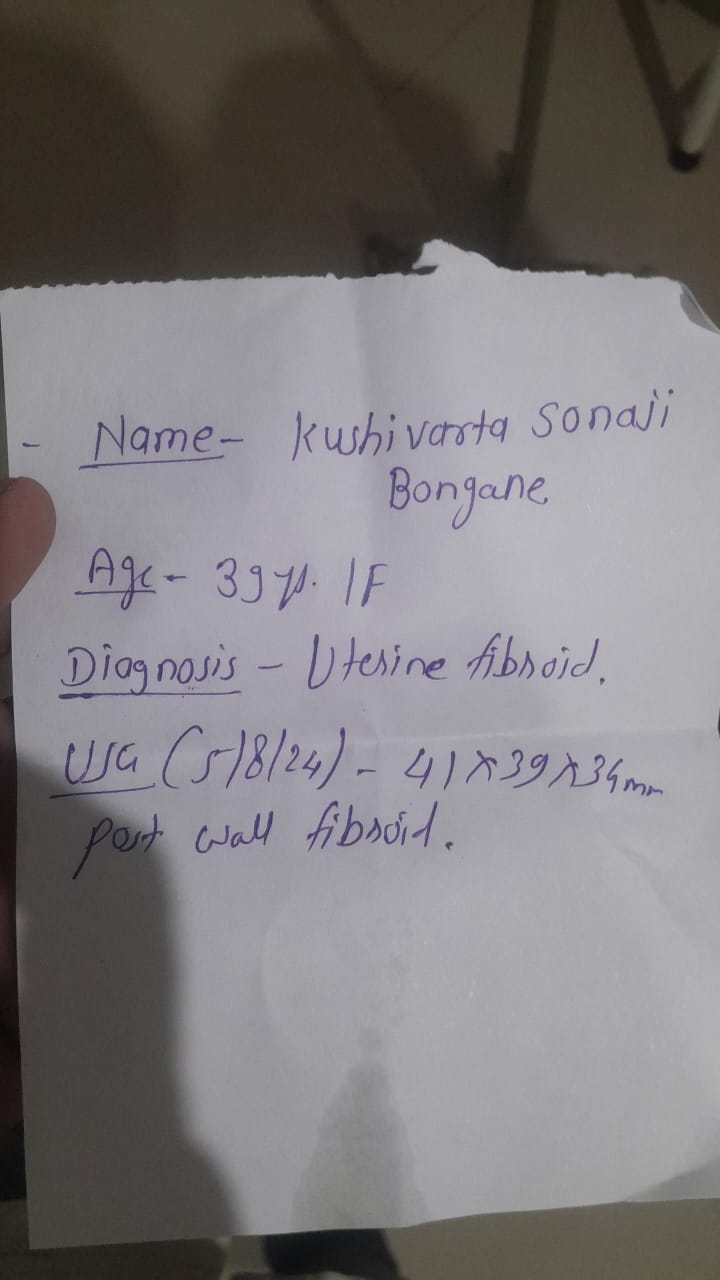 - Name - Kushivarta Sonaji
Bongane
Age - 39 yr. / F
Diagnosis - Uterine fibroid.
USG (5/8/24) - 41x39x34mm
post wall fibroid.